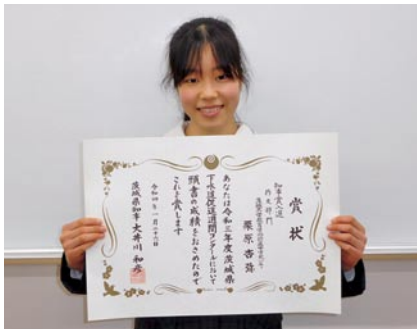 賞状
知事賞入選
作文部門
栗原杏弥
あなたは令和三年度茨城県
下水道促進週間コンクールにおいて
頭書の成績をおさめたので
これを賞します
令和四年一月二十六日
茨城県知事 大井川和彦